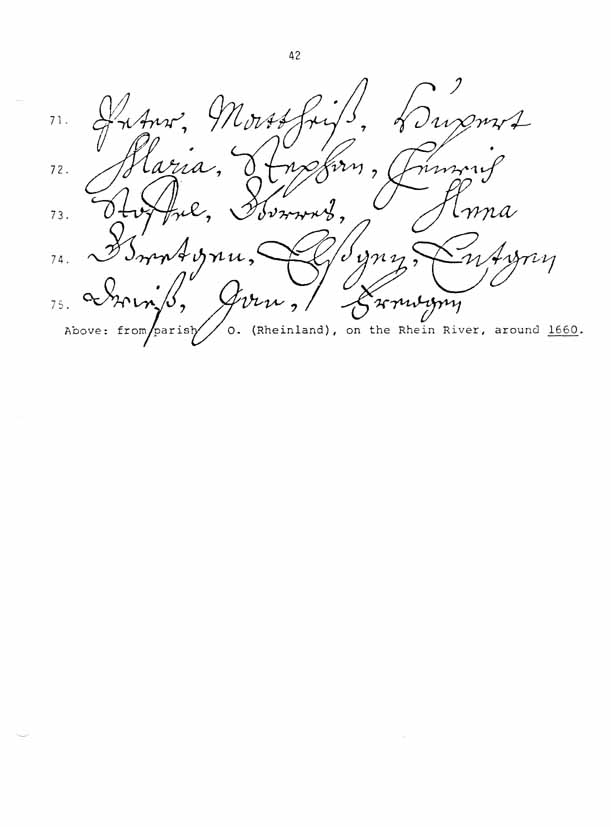 42
71. Peter, Mattheiß, Hupert
72. Maria, Stephan, Henrich
73. Stoffel, Gorres, Anna
74. Gretgen, Elßgen, Entgen
75. Drieß, Jan, Frewgen
Above: from parish O. (Rheinland), on the Rhein River, around 1660.